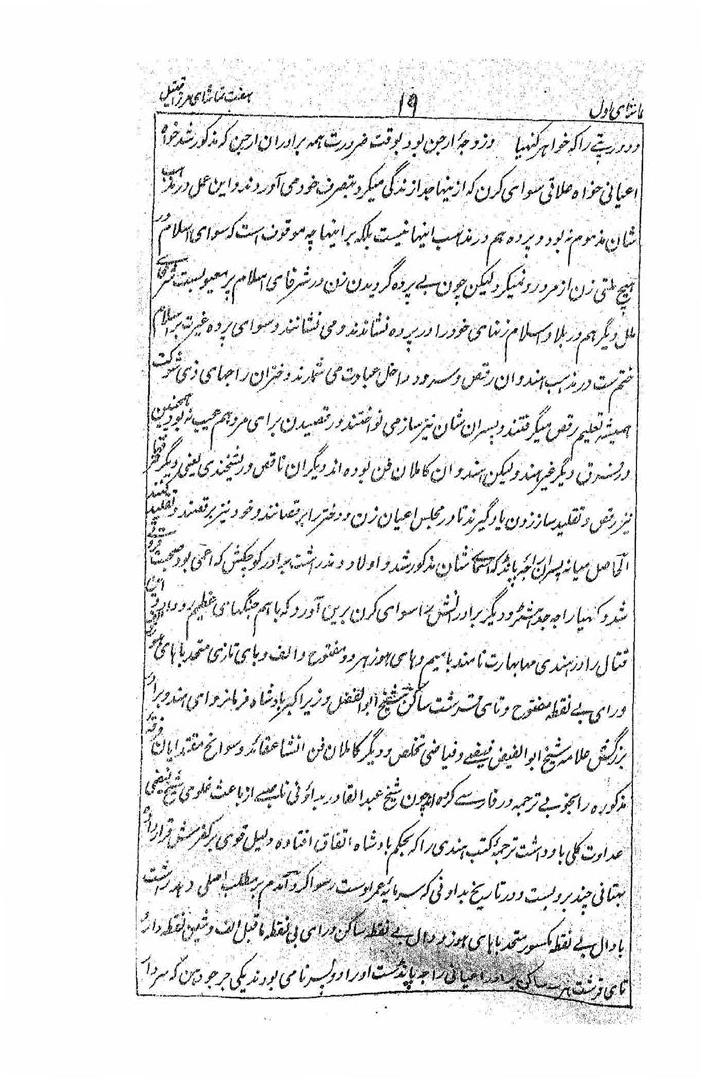 تماشای اول ۱۹ هفت تماشای مرزا قتیل
و دروپتی را که خواهر کنهیا و زوجهٔ ارجن بود بوقت ضرورت همه برادران ارجن که مذکور شد خواه
اعیانی خواه علاتی سوای کرن که از ینها جدا زندگی میکرد بتصرف خود می آوردند و این عمل در مذهب
شان مذموم نه بود و پرده هم در مذهب اینها نیست بلکه بر اینها چه موقوف است که سوای اسلام در
هیچ ملتی زن از مرد رو نمیگیرد لیکن چون بے پرده گردیدن زن در شرفای اسلام پر معیوبست شرفای
ملل دیگر هم در بلاد اسلام زنهای خود را در پرده نشاندند و می نشانند و سوای پرده غیرت بر اسلام
ختم ست در مذهب هندوان رقص و سرود داخل عبادت می شمارند دختران راجهای ذی شوکت
همیشه تعلیم رقص میگرفتند و پسران شان نیز ساز می نواختند و رقصیدن برای مرد هم عیب نه بود همچنین
در فرق دیگر غیر هند و لیکن هندوان کاملان فن بوده اند دیگران ناقص و ریشخندی یعنی دیگر فرقها
نیز رقص و تقلید ساز زدن یاد گیرند تا در مجلس اعیان زن و دختر را برقصانند و خود نیز برقصند و تقلید کنند
الحاصل میانه پسران راجه پانڈ که اسمای شان مذکور شد و اولاد دهدراشت برادر کوچکش که اعمی بود صحبت
شد و کنهیا راجه جدهشتر و دیگر برادرانش را سوای کرن برین آورد که باهم جنگهای عظیم رو داد و این
قتال را در هندی مهابهارت نامند بامیم و های هوز هر دو مفتوح و الف و بای تازی متحد باهای هوز
و رای بے نقطه مفتوح و تای قرشت ساکن شیخ ابوالفضل وزیر اکبر بادشاه فرمانروای هند و برادر
بزرگش علامه شیخ ابوالفیض فیضے و فیاضی تخلص و دیگر کاملان فن انشا عقائد و سوانح مقتدایان فرقهٔ
مذکوره را بخوبے ترجمه در فارسے کرده اند چون شیخ عبدالقادر بداؤنی ناصبے از باعث غلو می شیخ فیضی
عداوت کلی با او داشت ترجمهٔ کتب هندی را که بحکم بادشاه اتفاق افتاده دلیل قوی بر کفرش قرار داده
بهتانی چند برو بست و در تاریخ بداونی که سرمایهٔ عمر اوست رسوا کرد آمدم بر مطلب اصلی دهدراشت
بادال بے نقطه مکسور متحد باهای هوز و دال بے نقطه ساکن و رای بی نقطه ماقبل الف و شین نقطه دار و
تای قرشت هر دو ساکن برادر اعیانی راجه پانڈ ست او را دو پسر نامی بودند یکی جرجودهن که سردار